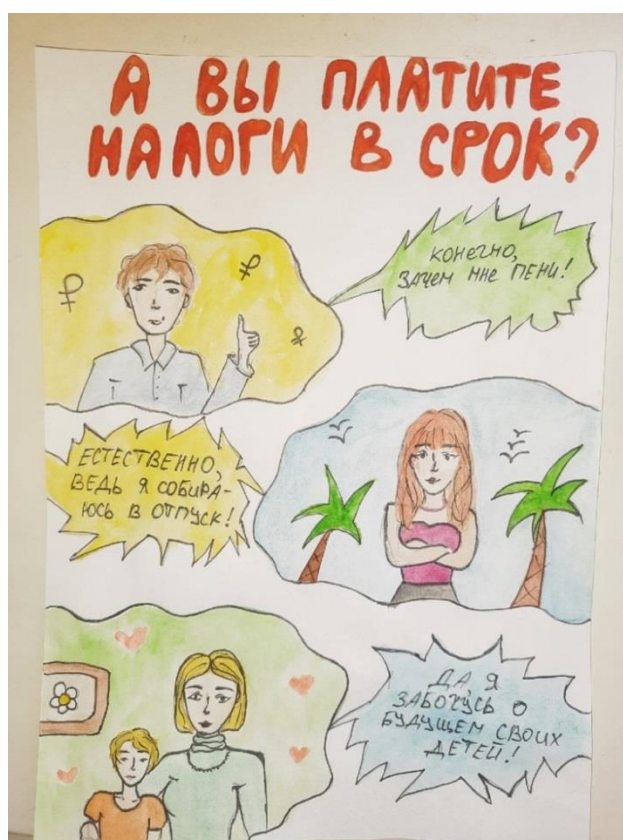 А ВЫ ПЛАТИТЕ
НАЛОГИ В СРОК?
КОНЕЧНО,
ЗАЧЕМ МНЕ ПЕНИ!
ЕСТЕСТВЕННО,
ВЕДЬ Я СОБИРА-
ЮСЬ В ОТПУСК!
ДА, Я
ЗАБОЧУСЬ О
БУДУЩЕМ СВОИХ
ДЕТЕЙ!